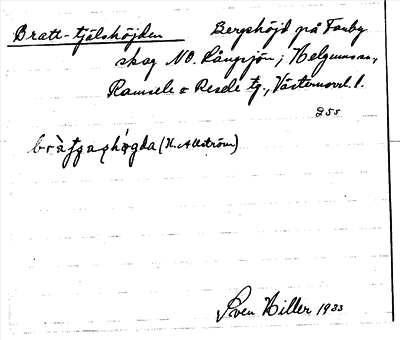 Bratt-tjälshöjden Bergshöjd på Forby
skog NO. Långsjön, Helgumsn.,
Ramsele o Resele tg., Västernorrl. l.
255
(H. Allström)
Sven Hiller 1933